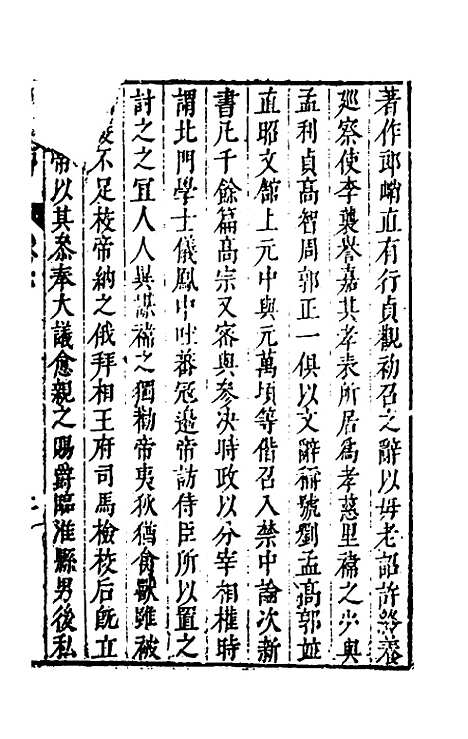 著作郎峭直有行貞觀初召之辭以母老詔許終養
廵察使李襲譽嘉其孝表所居爲孝慈里禕之少與
孟利貞高智周郭正一俱以文辭稱號劉孟高郭並
直昭文館上元中與元萬頃等偕召入禁中論次新
書凡千餘篇高宗又審與參决時政以分宰相權時
謂北門學士儀鳳中吐蕃寇邉帝訪侍臣所以置之
討之之宜人人異謀禕之獨勸帝夷狄猶禽獸雖被
不足校帝納之俄拜相王府司馬檢校后旣立
帝以其參奉大議愈親之賜爵臨淮縣男後私